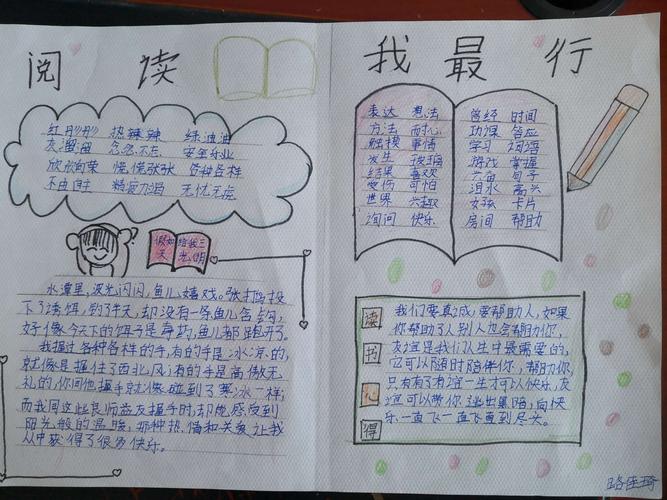 阅 读
我 最 行
红丹丹 热辣辣 绿油油
灰溜溜 念念不忘 安居乐业
欣欣向荣 慌慌张张 各种各样
不由自主 精疲力竭 无忧无虑
假如 给我三
天 光明
水潭里,波光闪闪,鱼儿嬉戏。张打鸣投
下了诱饵,钓了半天,却没有一条鱼儿含钩,
好像今天下的饵子是毒药,鱼儿都跑开了。
我握过各种各样的手,有的手是冰凉的,
就像是握住了西北风;有的手是高傲无
礼的,你同他握手就像碰到了寒冰一样;
而我同这些良师益友握手时却能感受到
阳光般的温暖,那种热情和关爱让我
从中获得了很多快乐。
表达 想法
方法 耐心
触摸 事情
发生 玻璃
结果 喜欢
悲伤 可怕
世界 兴趣
询问 快乐
曾经 时间
功课 答应
学习 词语
游戏 掌握
句子
泪水 高兴
女孩 卡片
房间 帮助
读
书
心
得
我们要真诚,要帮助人,如果
你帮助了人别人也会帮助你,
友谊是我们人生中最需要的,
它可以随时陪伴你,帮助你,
只有有了友谊一生才可以快乐,友
谊可以带你逃出黑暗,向快
乐一直飞一直飞直到尽头。
路佳琦